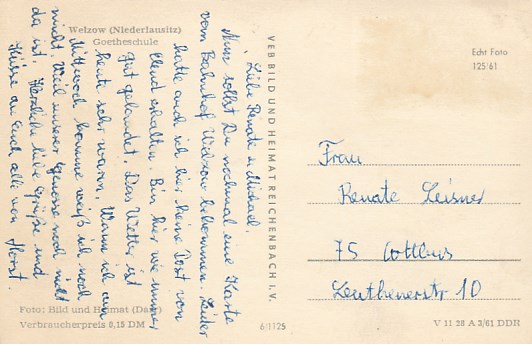 Welzow (Niederlausitz)
Goetheschule
Liebe Renate u. Michael.
Nun sollst Du nochmal eine Karte
vom Bahnhof Welzow bekommen. Leider
hatte auch ich hier keine Post von
Euch erhalten. Bin hier wie immer
gut gelandet. Das Wetter ist
heute sehr warm. Wann ich am
Mittwoch komme weiß ich noch
nicht. Weil unserer Genosse noch nicht
da ist. Herzliche liebe Grüße und
Küsse an Euch alle von
Horst.
Foto: Bild und Heimat (Darr)
Verbraucherpreis 0,15 DM
VEB BILD UND HEIMAT REICHENBACH I. V.
6/1125
Echt Foto
125/61
Frau
Renate Leisner
75 Cottbus
Leuthenerstr 10
V 11 28 A 3/61 DDR